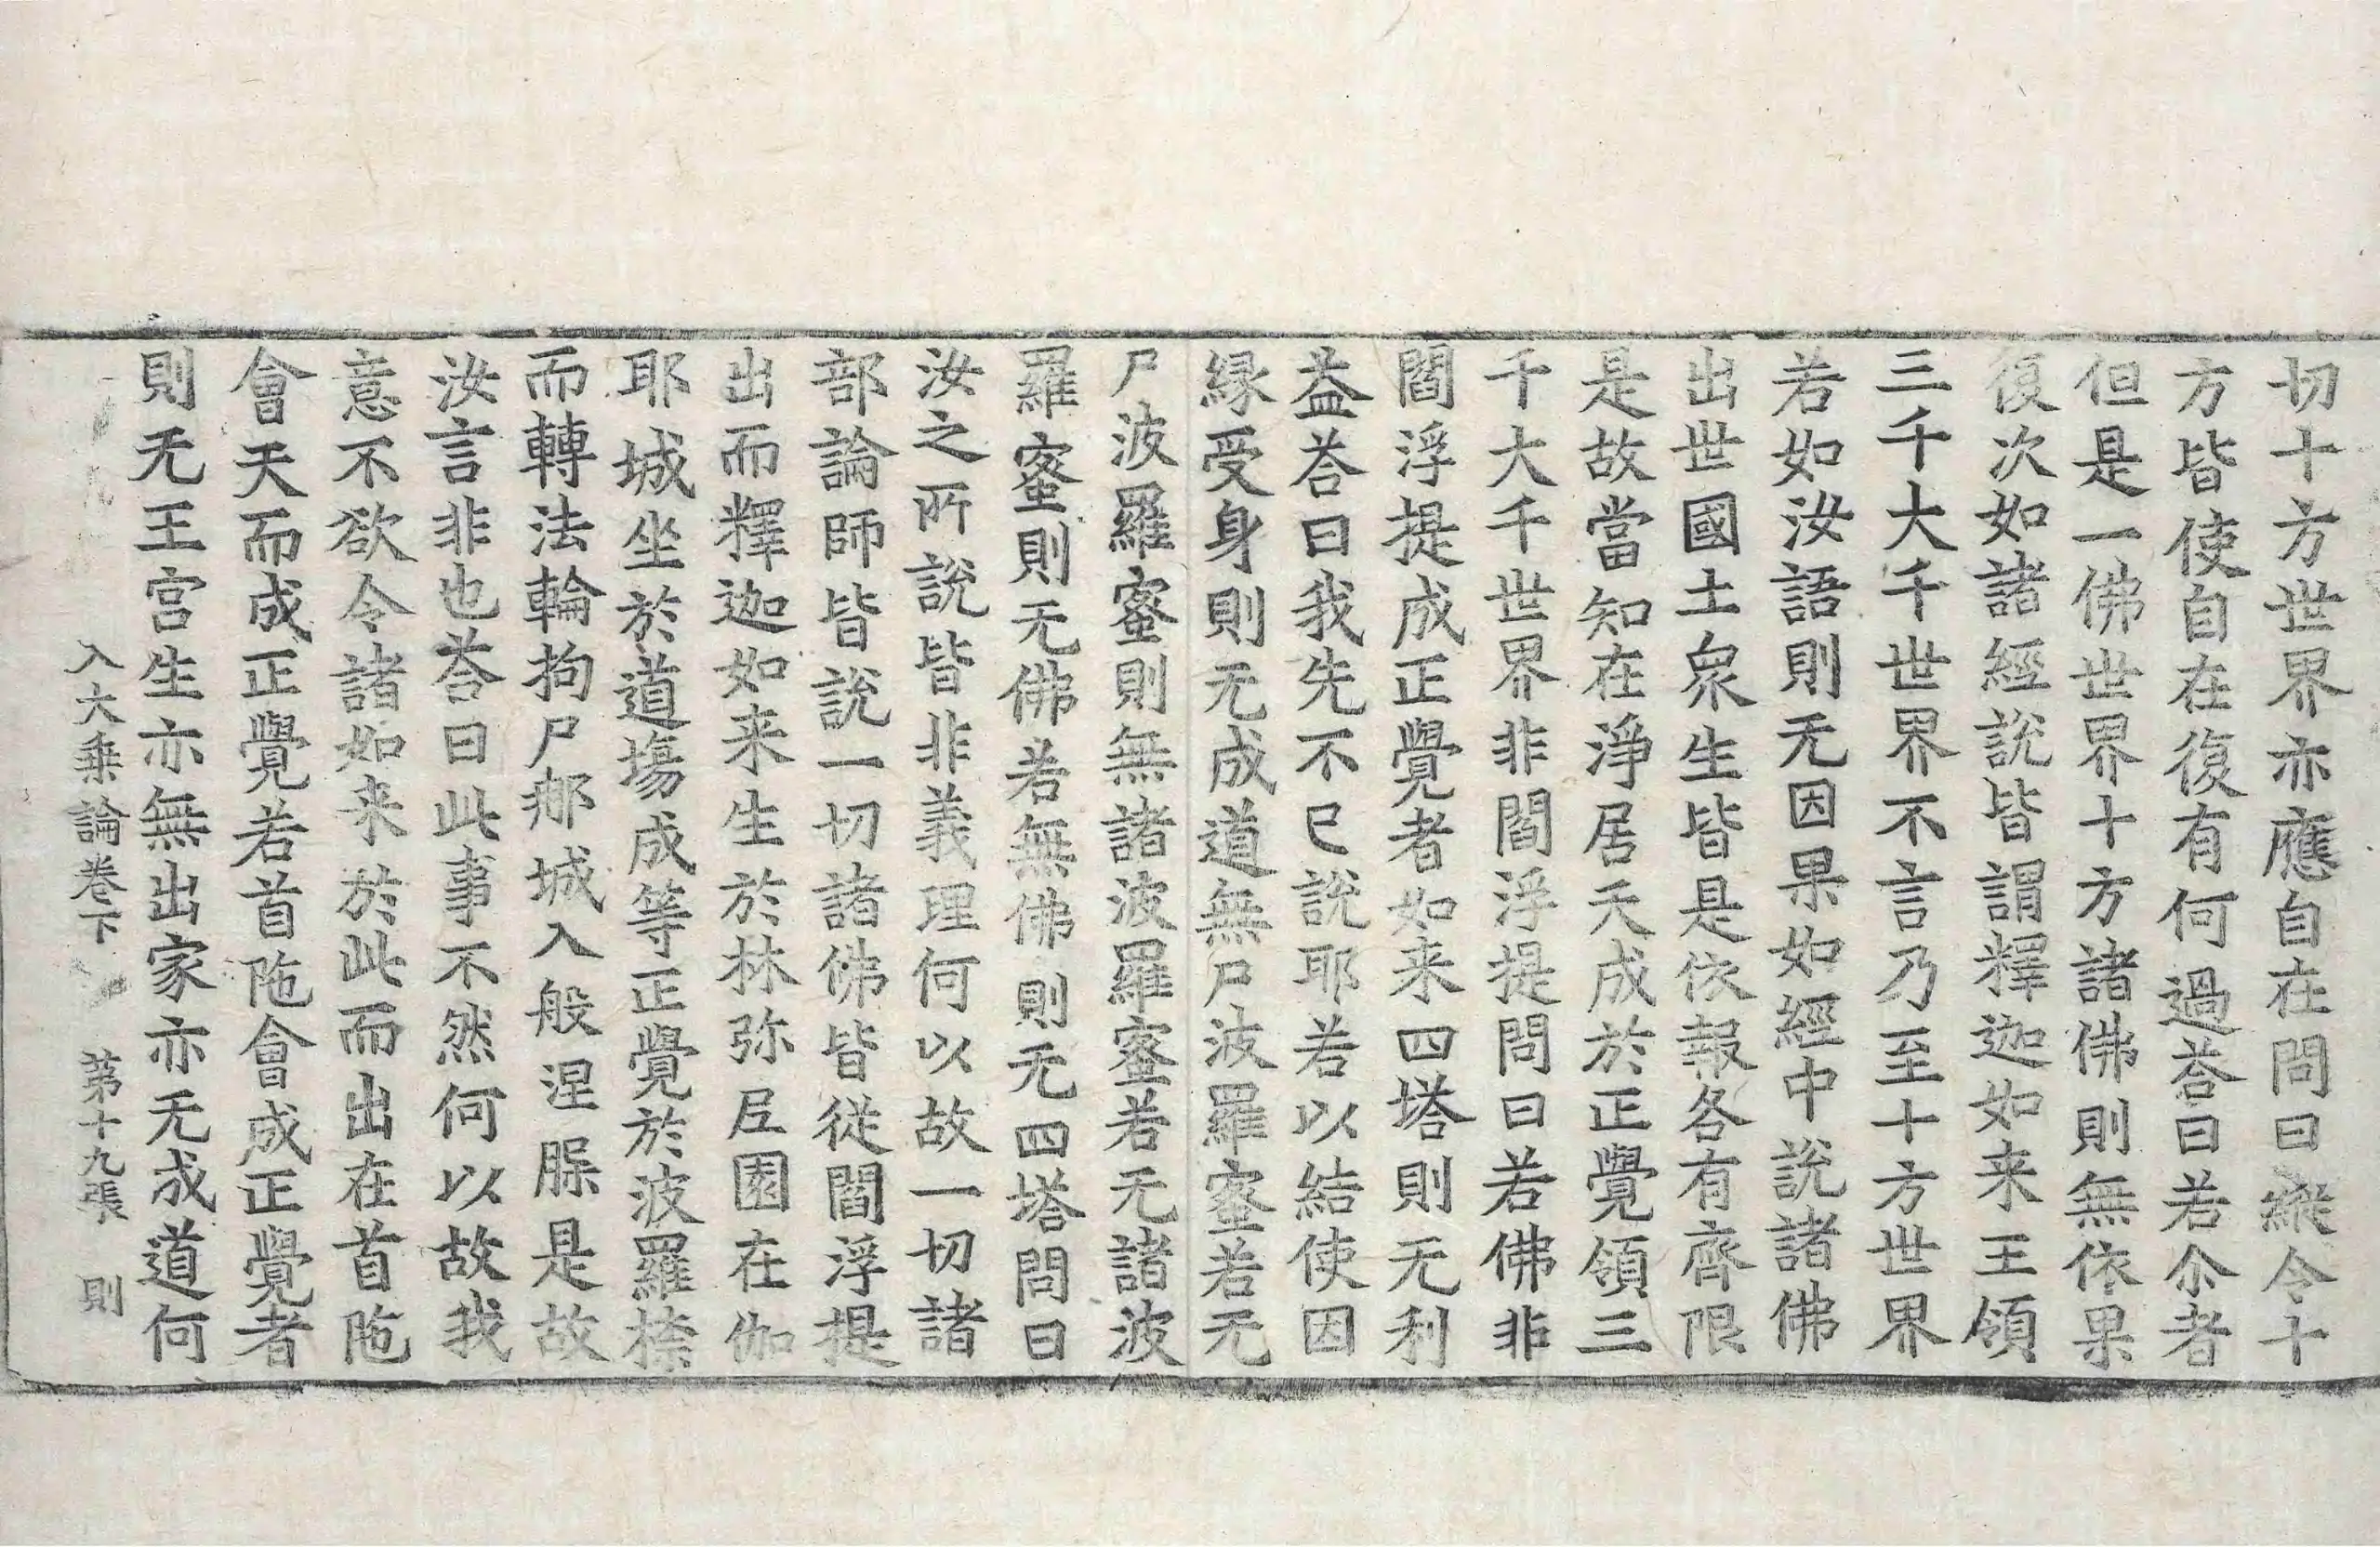 切十方世界亦應自在問曰縱令十
方皆使自在復有何過荅曰若尒者
但是一佛世界十方諸佛則無依果
復次如諸經說皆謂釋迦如来王領
三千大千世界不言乃至十方世界
若如汝語則无因果如經中說諸佛
出世國土衆生皆是依報各有齊限
是故當知在淨居天成於正覺領三
千大千世界非閻浮提問曰若佛非
閻浮提成正覺者如来四塔則无利
益荅曰我先不已說耶若以結使因
縁受身則无成道無尸波羅蜜若无
尸波羅蜜則無諸波羅蜜若无諸波
羅蜜則无佛若無佛則无四塔問曰
汝之所說皆非義理何以故一切諸
部論師皆說一切諸佛皆從閻浮提
出而釋迦如来生於林弥𡰱園在伽
耶城坐於道塲成等正覺於波羅㮈
而轉法輪拘尸郍城入般涅縣是故
汝言非也荅曰此事不然何以故我
意不欲令諸如来於此而出在首陁
會天而成正覺若首陁會成正覺者
則无王宫生亦無出家亦无成道何
入大乗論卷下 苐十九張 則